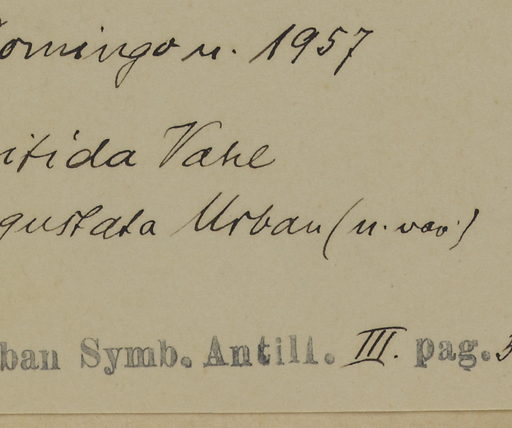 omingo n. 1957
itida Vahl
gustata Urban (n. var.)
ban Symb. Antill. III. pag.